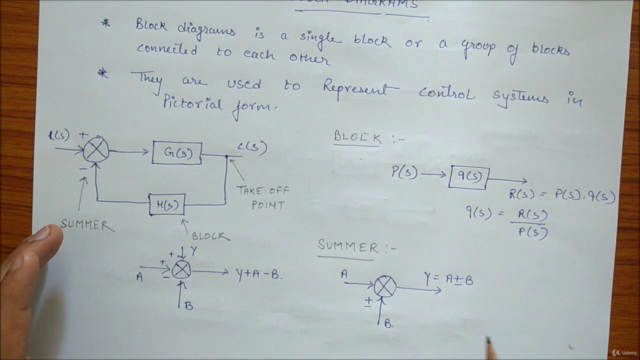 BLOCK DIAGRAMS
* Block diagrams is a single block or a group of blocks
connected to each other
* They are used to Represent control systems in
Pictorial form.
R(s) + G(s) C(s)
−
H(s)
TAKE OFF
POINT
SUMMER
BLOCK
BLOCK :-
P(s) q(s)
R(s) = P(s).q(s)
q(s) = R(s)
P(s)
+ Y
+
A − Y+A-B.
B
SUMMER :-
A Y = A±B
±
B.
Udemy